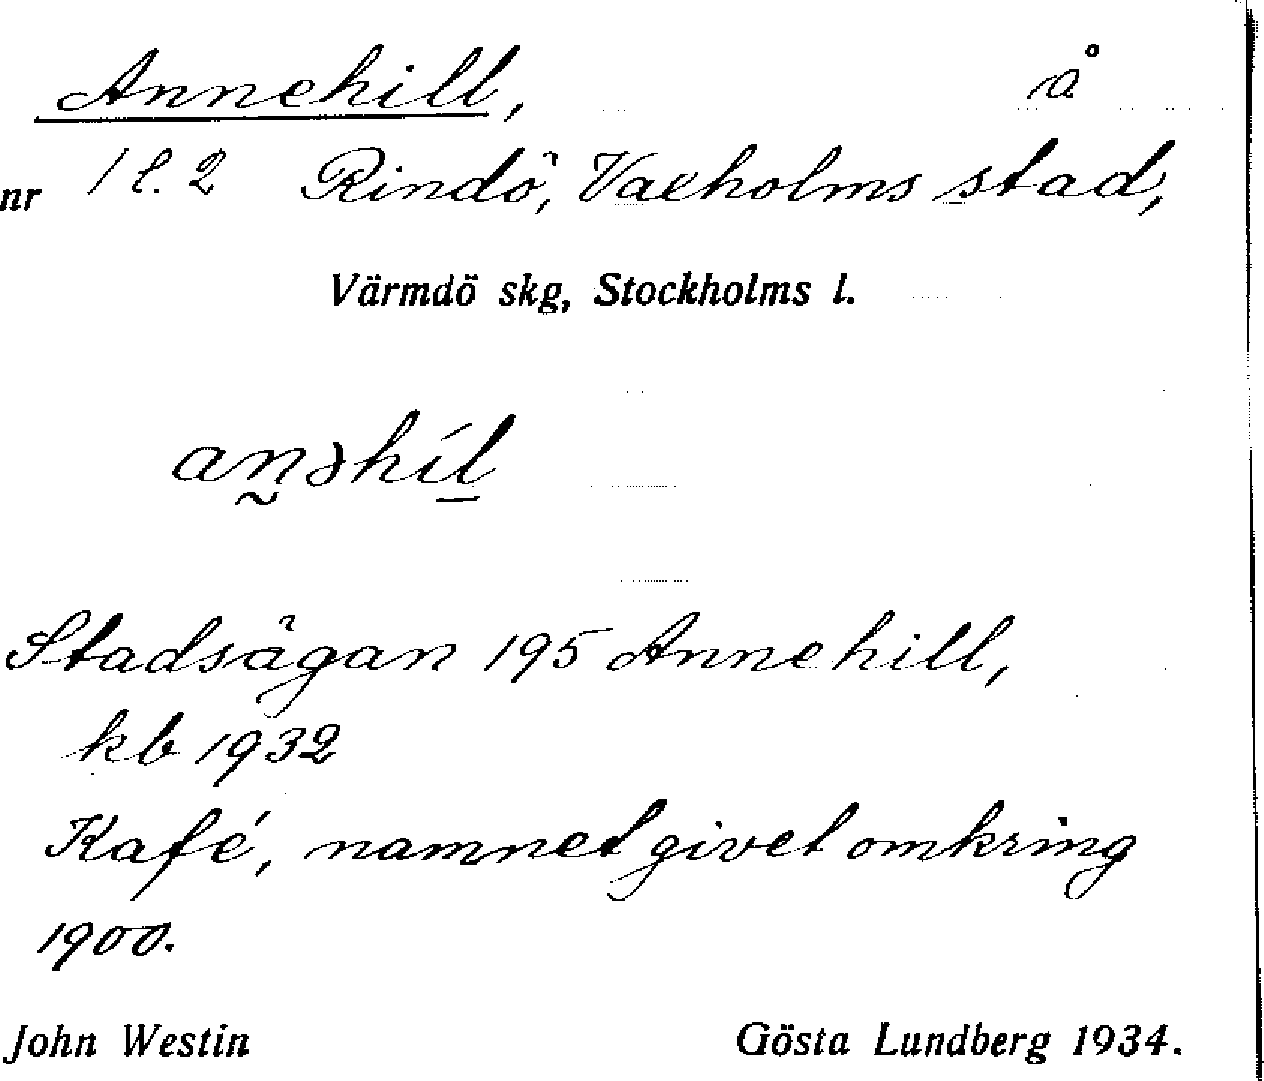 Annehill, å
nr 1 l. 2 Rindö, Vaxholms stad,
Värmdö skg, Stockholms l.
an̰əhíl̲
Stadsägan 195 Annehill,
kb 1932
Kafé, namnet givet omkring
1900.
John Westin Gösta Lundberg 1934.